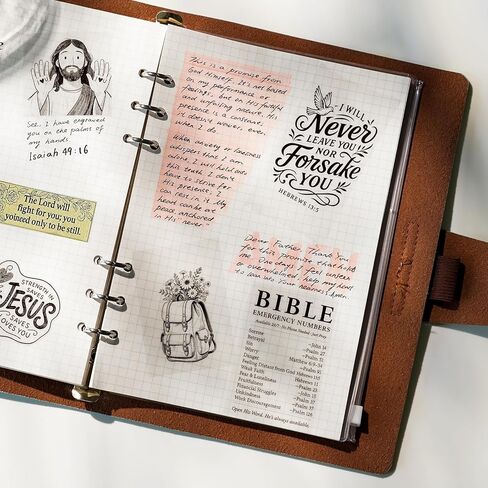 See, I have engraved
you on the palms of
my hands.
Isaiah 49:16
The Lord will
fight for you; you
only to be still.
STRENGTH IN
JESUS
SAVES
LOVES YOU
This is a promise from
God Himself. It's not based
on my performance or
feelings, but on His faithful
and unfailing nature. His
presence is a constant;
it doesn't waver, even
when I do.
When anxiety or loneliness
whispers that I am
alone, I will hold onto
this truth. I don't
have to strive for
His presence; I
can rest in it. My
heart can be at
peace, anchored
in His "never"
I WILL
Never
LEAVE YOU
NOR
Forsake
YOU
HEBREWS 13:5
Dear Father, Thank You
for this promise that
me. On days I feel unseen
or overwhelmed, help my heart
to
BIBLE
EMERGENCY NUMBERS
Available 24/7 · No Phone Needed · Just Pray
Sorrow ~John 14
Betrayal ~Psalm 27
Sin ~Psalm 51
Worry Matthew 6:9-34
Danger ~Psalm 91
Feeling Distant from God Hebrews 13:5
Weak Faith Hebrews 11
Fear & Loneliness ~Psalm 23
Fruitfulness ~John 15
Financial Struggles ~Psalm 37
Unkindness ~Psalm 37
Work Discouragement ~Psalm 126
Open His Word. He's always available.